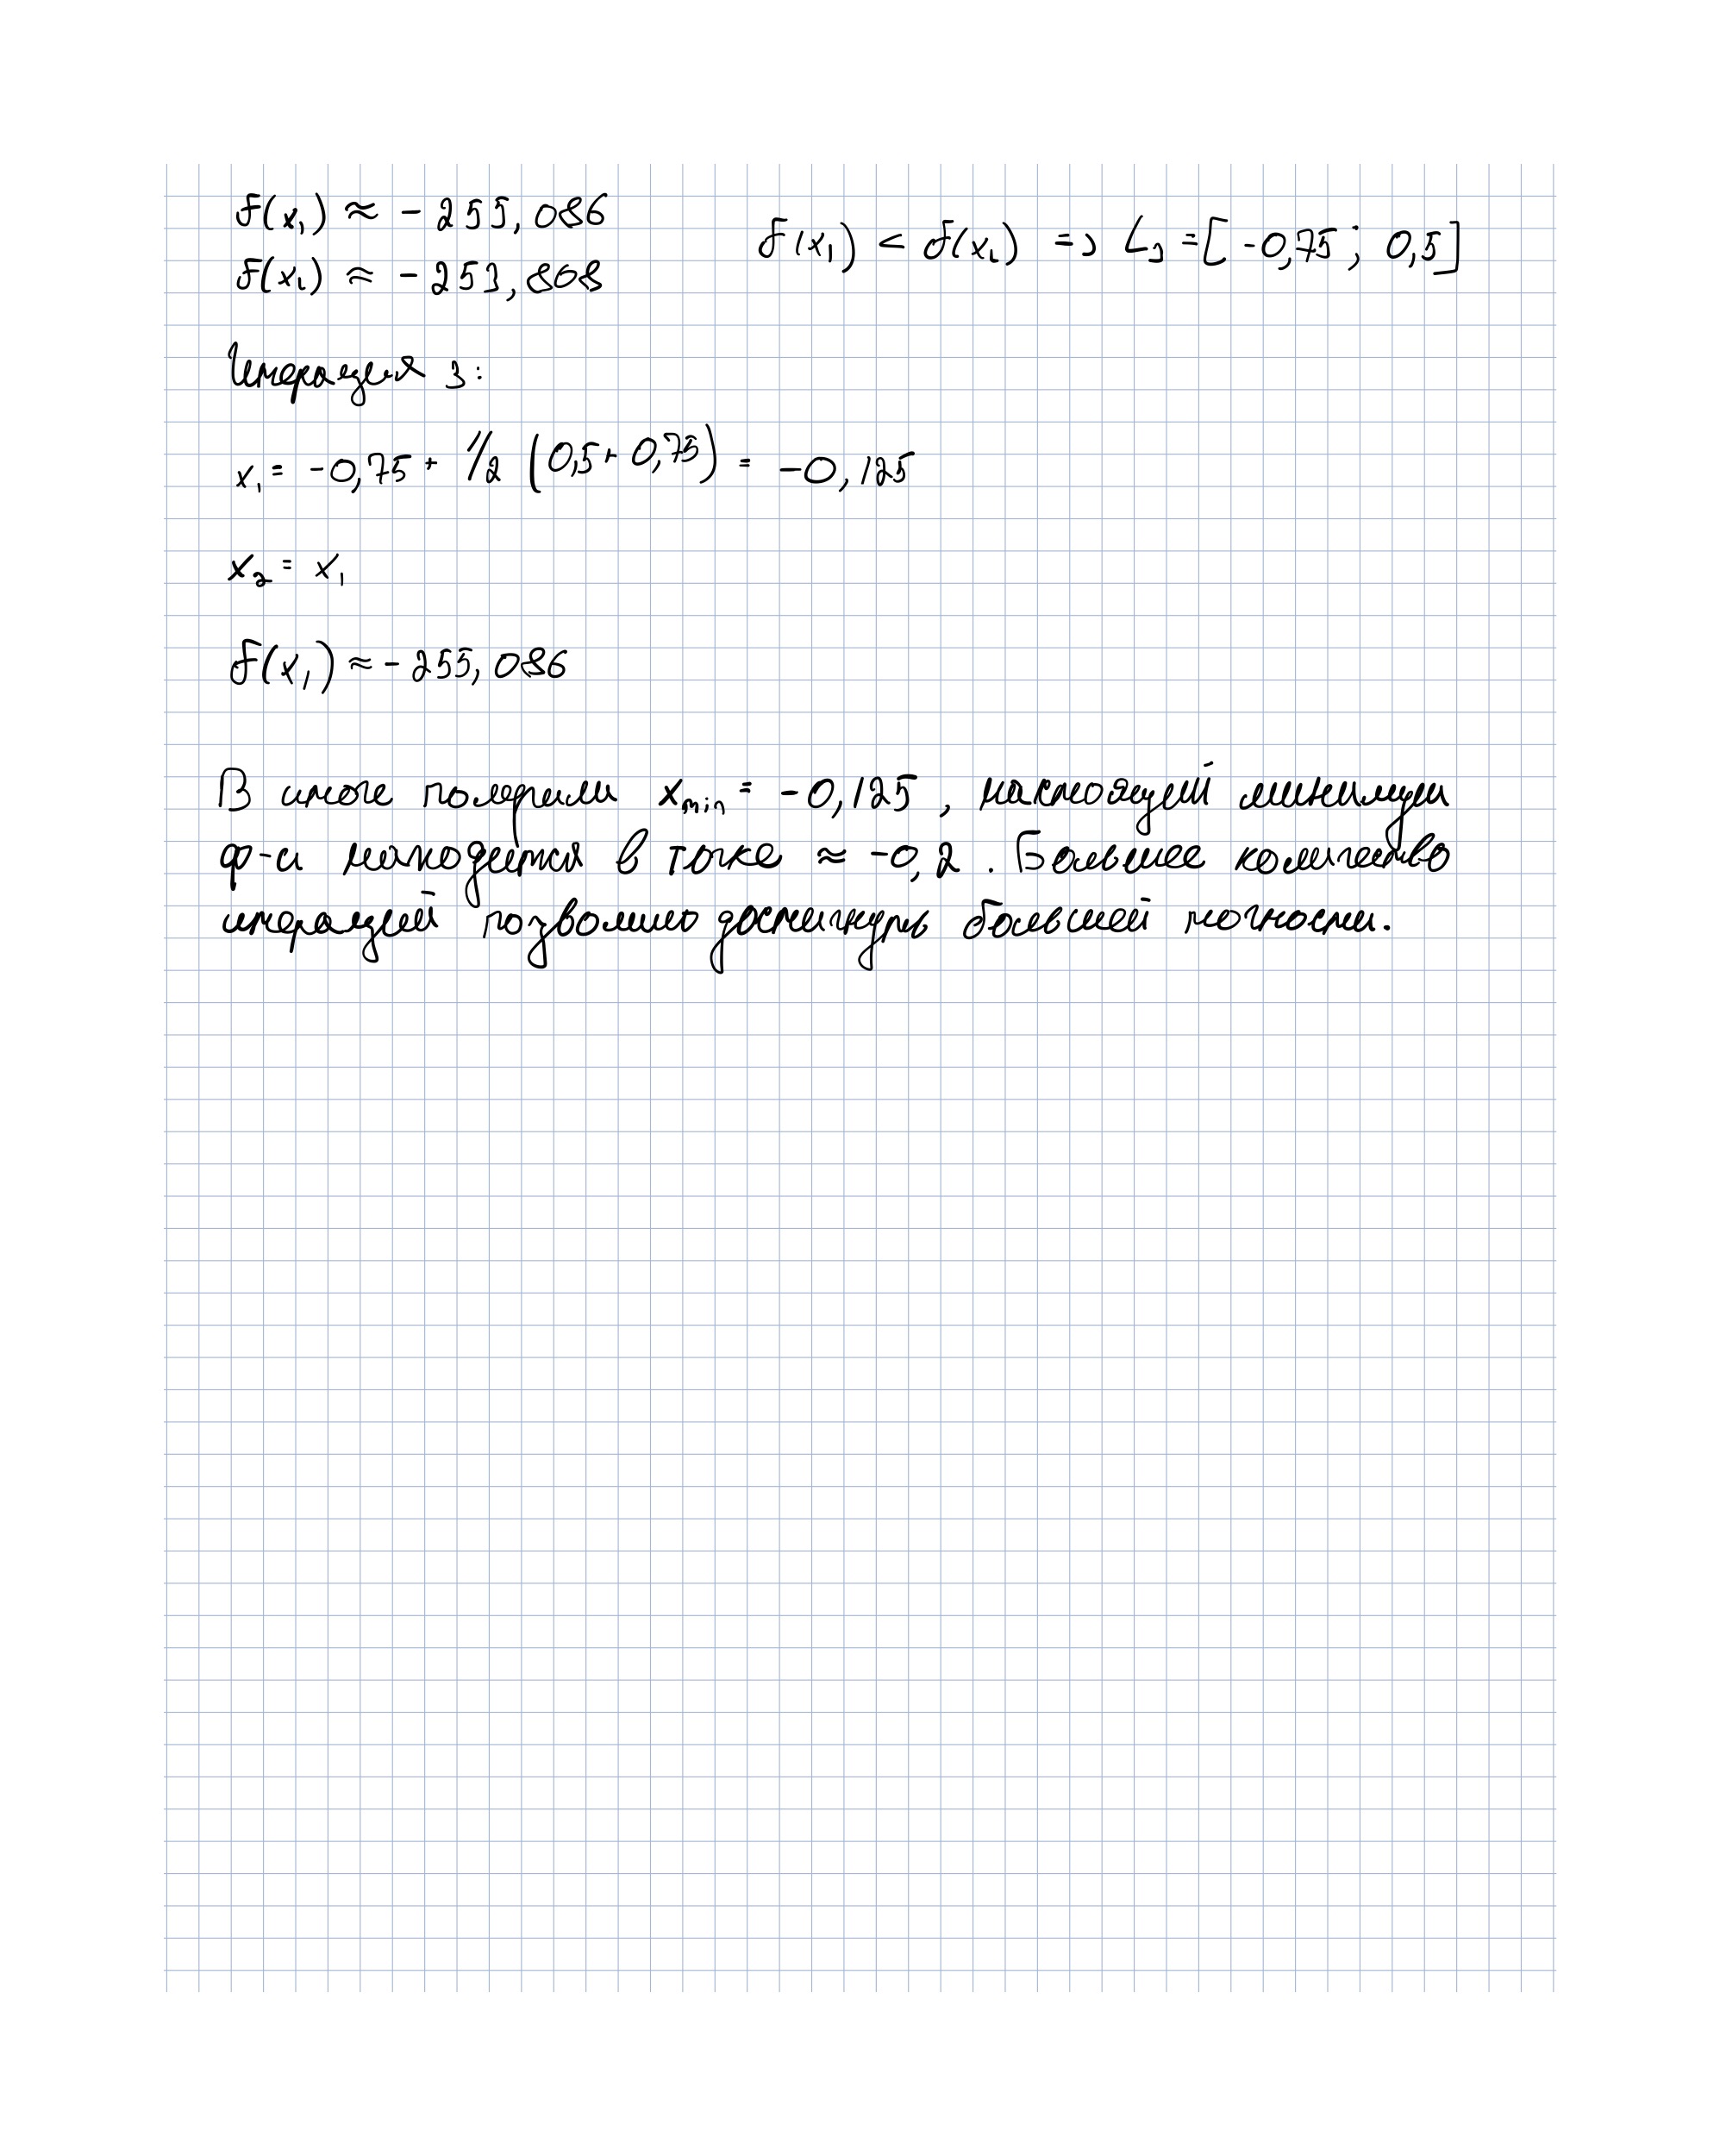 f(x₁) ≈ -255,086
f(x₂) ≈ -253,808
f(x₁) < f(x₂) => L₃ = [-0,75; 0,5]
Итерация 3:
x₁ = -0,75 + 1/2 (0,5 + 0,75) = -0,125
x₂ = x₁
f(x₁) ≈ -255,086
В итоге получили x_min = -0,125, настоящий минимум
ф-и находится в точке ≈ -0,2. Большее количество
итераций позволило достигнуть большей точности.